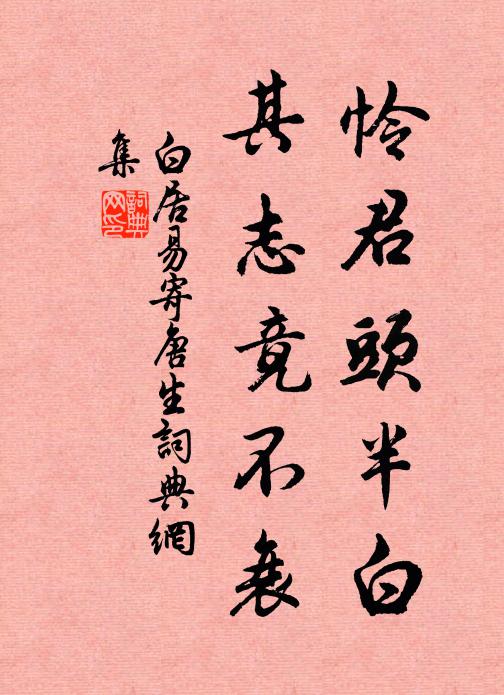 怜君頭半白
其志竟不衰
白居易寄唐生詞典網
集
詞典
网印